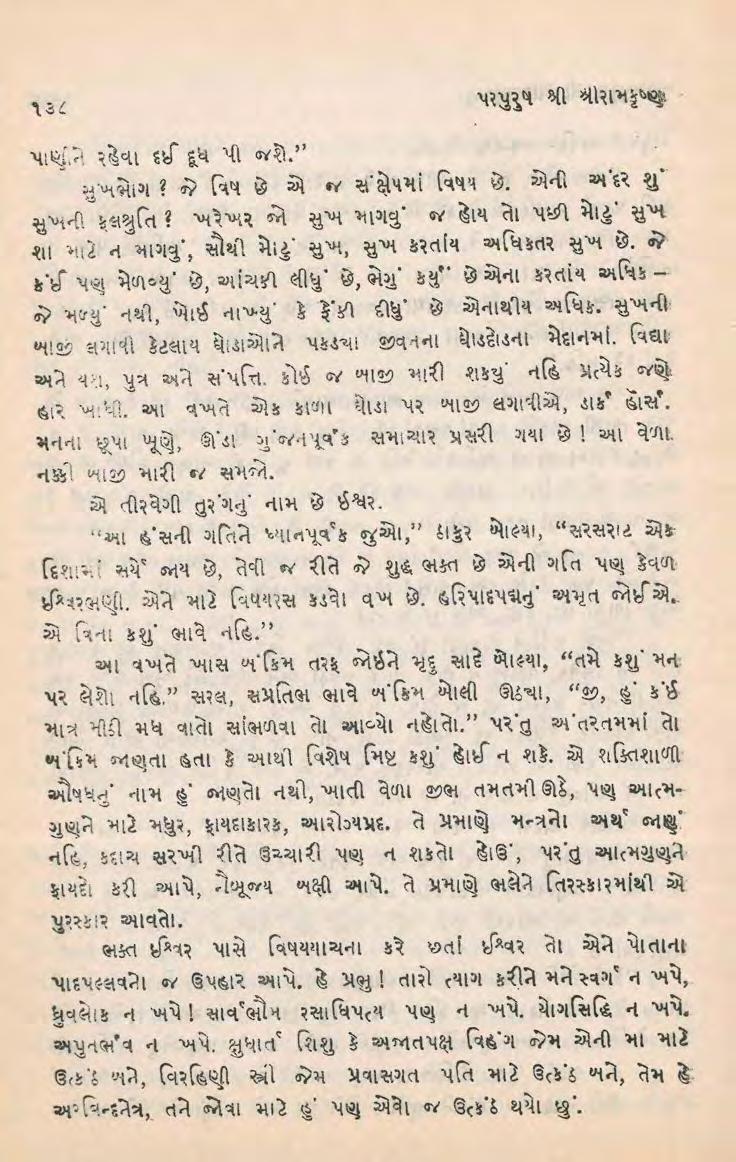 ૧૩૮
પરપુરુષ શ્રી શ્રીરામકૃષ્ણ
પાણીને રહેવા દઈ દૂધ પી જશે.”
સુખભોગ ? જે વિષ છે એ જ સંક્ષેપમાં વિષય છે. એની અંદર શું
સુખની ફલશ્રુતિ ? ખરેખર જો સુખ માગવું જ હોય તો પછી મોટું સુખ
શા માટે ન માગવું, સૌથી મોટું સુખ, સુખ કરતાંય અધિકતર સુખ છે. જે
કંઈ પણ મેળવ્યું છે, આંચકી લીધું છે, ભેગું કર્યું છે એના કરતાંય અધિક –
જે મળ્યું નથી, ખોઈ નાખ્યું કે ફેંકી દીધું છે એનાથીય અધિક. સુખની
બાજી લગાવી કેટલાય ઘોડાઓને પકડ્યા જીવનના ઘોડદોડના મેદાનમાં. વિદ્યા
અને યશ, પુત્ર અને સંપત્તિ. કોઈ જ બાજી મારી શક્યું નહિ પ્રત્યેક જણે
હાર ખાધી. આ વખતે એક કાળા ઘોડા પર બાજી લગાવીએ, ડાર્ક હૉર્સ.
મનના છૂપા ખૂણે, ઊંડા ગુંજનપૂર્વક સમાચાર પ્રસરી ગયા છે ! આ વેળા
નક્કી બાજી મારી જ સમજો.
એ તીરવેગી તુરંગનું નામ છે ઈશ્વર.
“આ હંસની ગતિને ધ્યાનપૂર્વક જુઓ,” ઠાકુર બોલ્યા, “સરસરાટ એક
દિશામાં સર્યે જાય છે, તેવી જ રીતે જે શુદ્ધ ભક્ત છે એની ગતિ પણ કેવળ
ઈશ્વરભણી. એને માટે વિષયરસ કડવો વખ છે. હરિપાદપદ્મનું અમૃત જોઈએ.
એ વિના કશું ભાવે નહિ.”
આ વખતે ખાસ બંકિમ તરફ જોઈને મૃદુ સાદે બોલ્યા, “તમે કશું મન
પર લેશો નહિ.” સરલ, સપ્રતિભ ભાવે બંકિમ બોલી ઊઠ્યા, “જી, હું કંઈ
માત્ર મીઠી મધ વાતો સાંભળવા તો આવ્યો નહોતો.” પરંતુ અંતરતમમાં તો
બંકિમ જાણતા હતા કે આથી વિશેષ મિષ્ટ કશું હોઈ ન શકે. એ શક્તિશાળી
ઔષધનું નામ હું જાણતો નથી, ખાતી વેળા જીભ તમતમી ઊઠે, પણ આત્મ-
ગુણને માટે મધુર, ફાયદાકારક, આરોગ્યપ્રદ. તે પ્રમાણે મન્ત્રનો અર્થ જાણું
નહિ, કદાચ સરખી રીતે ઉચ્ચારી પણ ન શકતો હોઉં, પરંતુ આત્મગુણને
ફાયદો કરી આપે, નૈરુજ્ય બક્ષી આપે. તે પ્રમાણે ભલેને તિરસ્કારમાંથી એ
પુરસ્કાર આવતો.
ભક્ત ઈશ્વર પાસે વિષયયાચના કરે છતાં ઈશ્વર તો એને પોતાના
પાદપલ્લવનો જ ઉપહાર આપે. હે પ્રભુ ! તારો ત્યાગ કરીને મને સ્વર્ગ ન ખપે,
ધ્રુવલોક ન ખપે ! સાર્વભૌમ રસાધિપત્ય પણ ન ખપે. યોગસિદ્ધિ ન ખપે.
અપુનર્ભવ ન ખપે. ક્ષુધાર્ત શિશુ કે અજાતપક્ષ વિહંગ જેમ એની મા માટે
ઉત્કંઠ બને, વિરહિણી સ્ત્રી જેમ પ્રવાસગત પતિ માટે ઉત્કંઠ બને, તેમ હે
અરવિન્દનેત્ર, તને જોવા માટે હું પણ એવો જ ઉત્કંઠ થયો છું.